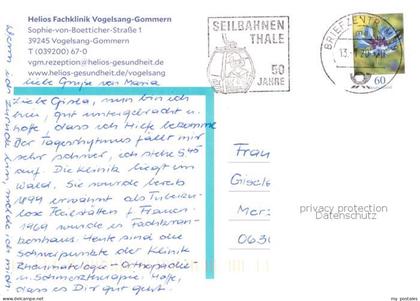 Helios Fachklinik Vogelsang-Gommern
Sophie-von-Boetticher-Straße 1
39245 Vogelsang-Gommern
T (039200) 67-0
vgm.rezeption@helios-gesundheit.de
www.helios-gesundheit.de/vogelsang
liebe Grüße von Maria
Liebe Gisela, nun bin ich
hier, gut untergebracht u.
hoffe, dass ich Hilfe bekomme.
Der Tagesrhythmus fällt mir
sehr schwer, ich stehe 5.45
auf. Die Klinik liegt im
Wald. Sie wurde bereits
1899 erwähnt als Tuberku-
lose Heilstätten f. Frauen.
1969 wurde es Fachkran-
kenhaus. Heute sind die
Schwerpunkte der Klinik
Rheumatologie - Orthopädie
u. Schmerztherapie. Hoffe,
dass es Dir gut geht.
Wenn ich zuhause bin, melde ich mich
SEILBAHNEN
THALE
50
JAHRE
BRIEFZENTRUM
60
Frau
Gisel
Merz
0630
privacy protection
Datenschutz
www.delcampe.net